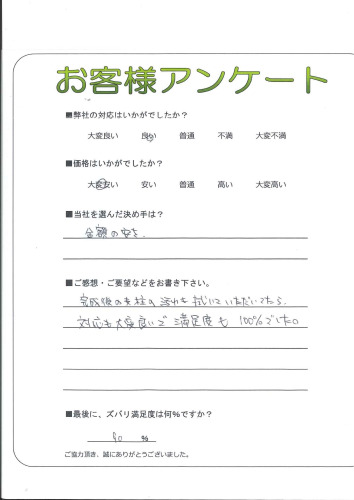 お客様アンケート
■弊社の対応はいかがでしたか？
大変良い 良い 普通 不満 大変不満
■価格はいかがでしたか？
大変安い 安い 普通 高い 大変高い
■当社を選んだ決め手は？
金額の安さ
■ご感想・ご要望などをお書き下さい。
完成後の支柱の汚れを拭いていただいてたら
対応も大変良いで満足度も100%でした。
■最後に、ズバリ満足度は何%ですか？
90 %
ご協力頂き、誠にありがとうございました。